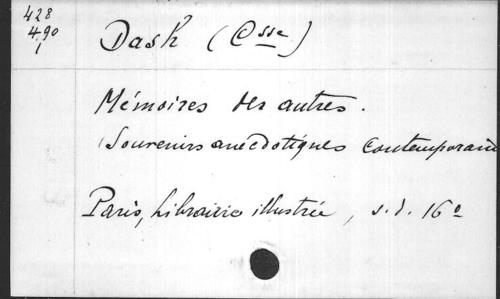 428
490
1
Dash (Csse)
Mémoires des autres.
(Souvenirs anecdotiques contemporain
Paris, Librairie illustrée, s.d. 16º